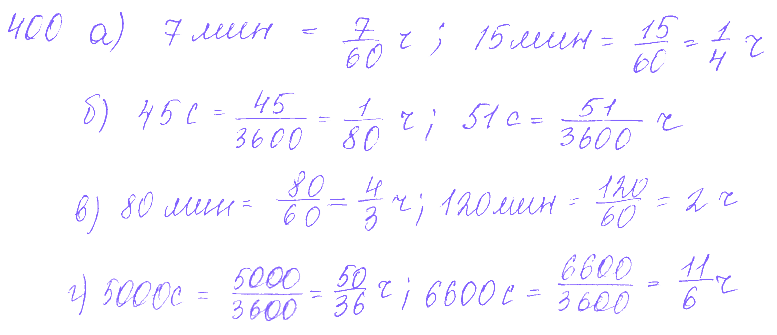 400 а) 7 мин = 7/60 ч ; 15 мин = 15/60 = 1/4 ч
б) 45 с = 45/3600 = 1/80 ч ; 51 с = 51/3600 ч
в) 80 мин = 80/60 = 4/3 ч ; 120 мин = 120/60 = 2 ч
г) 5000 с = 5000/3600 = 50/36 ч ; 6600 с = 6600/3600 = 11/6 ч